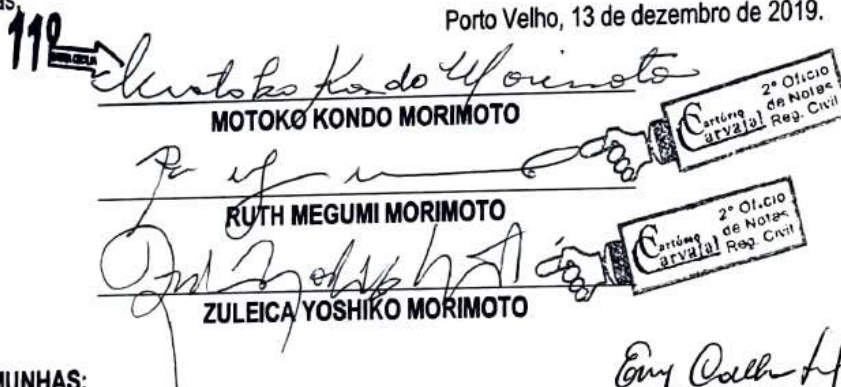 as,
Porto Velho, 13 de dezembro de 2019.
11º
Motoko Kondo Morimoto
MOTOKO KONDO MORIMOTO
Cartório Carvajal 2° Ofício de Notas Reg. Civil
RUTH MEGUMI MORIMOTO
Cartório Carvajal 2° Ofício de Notas Reg. Civil
ZULEICA YOSHIKO MORIMOTO
MUNHAS: